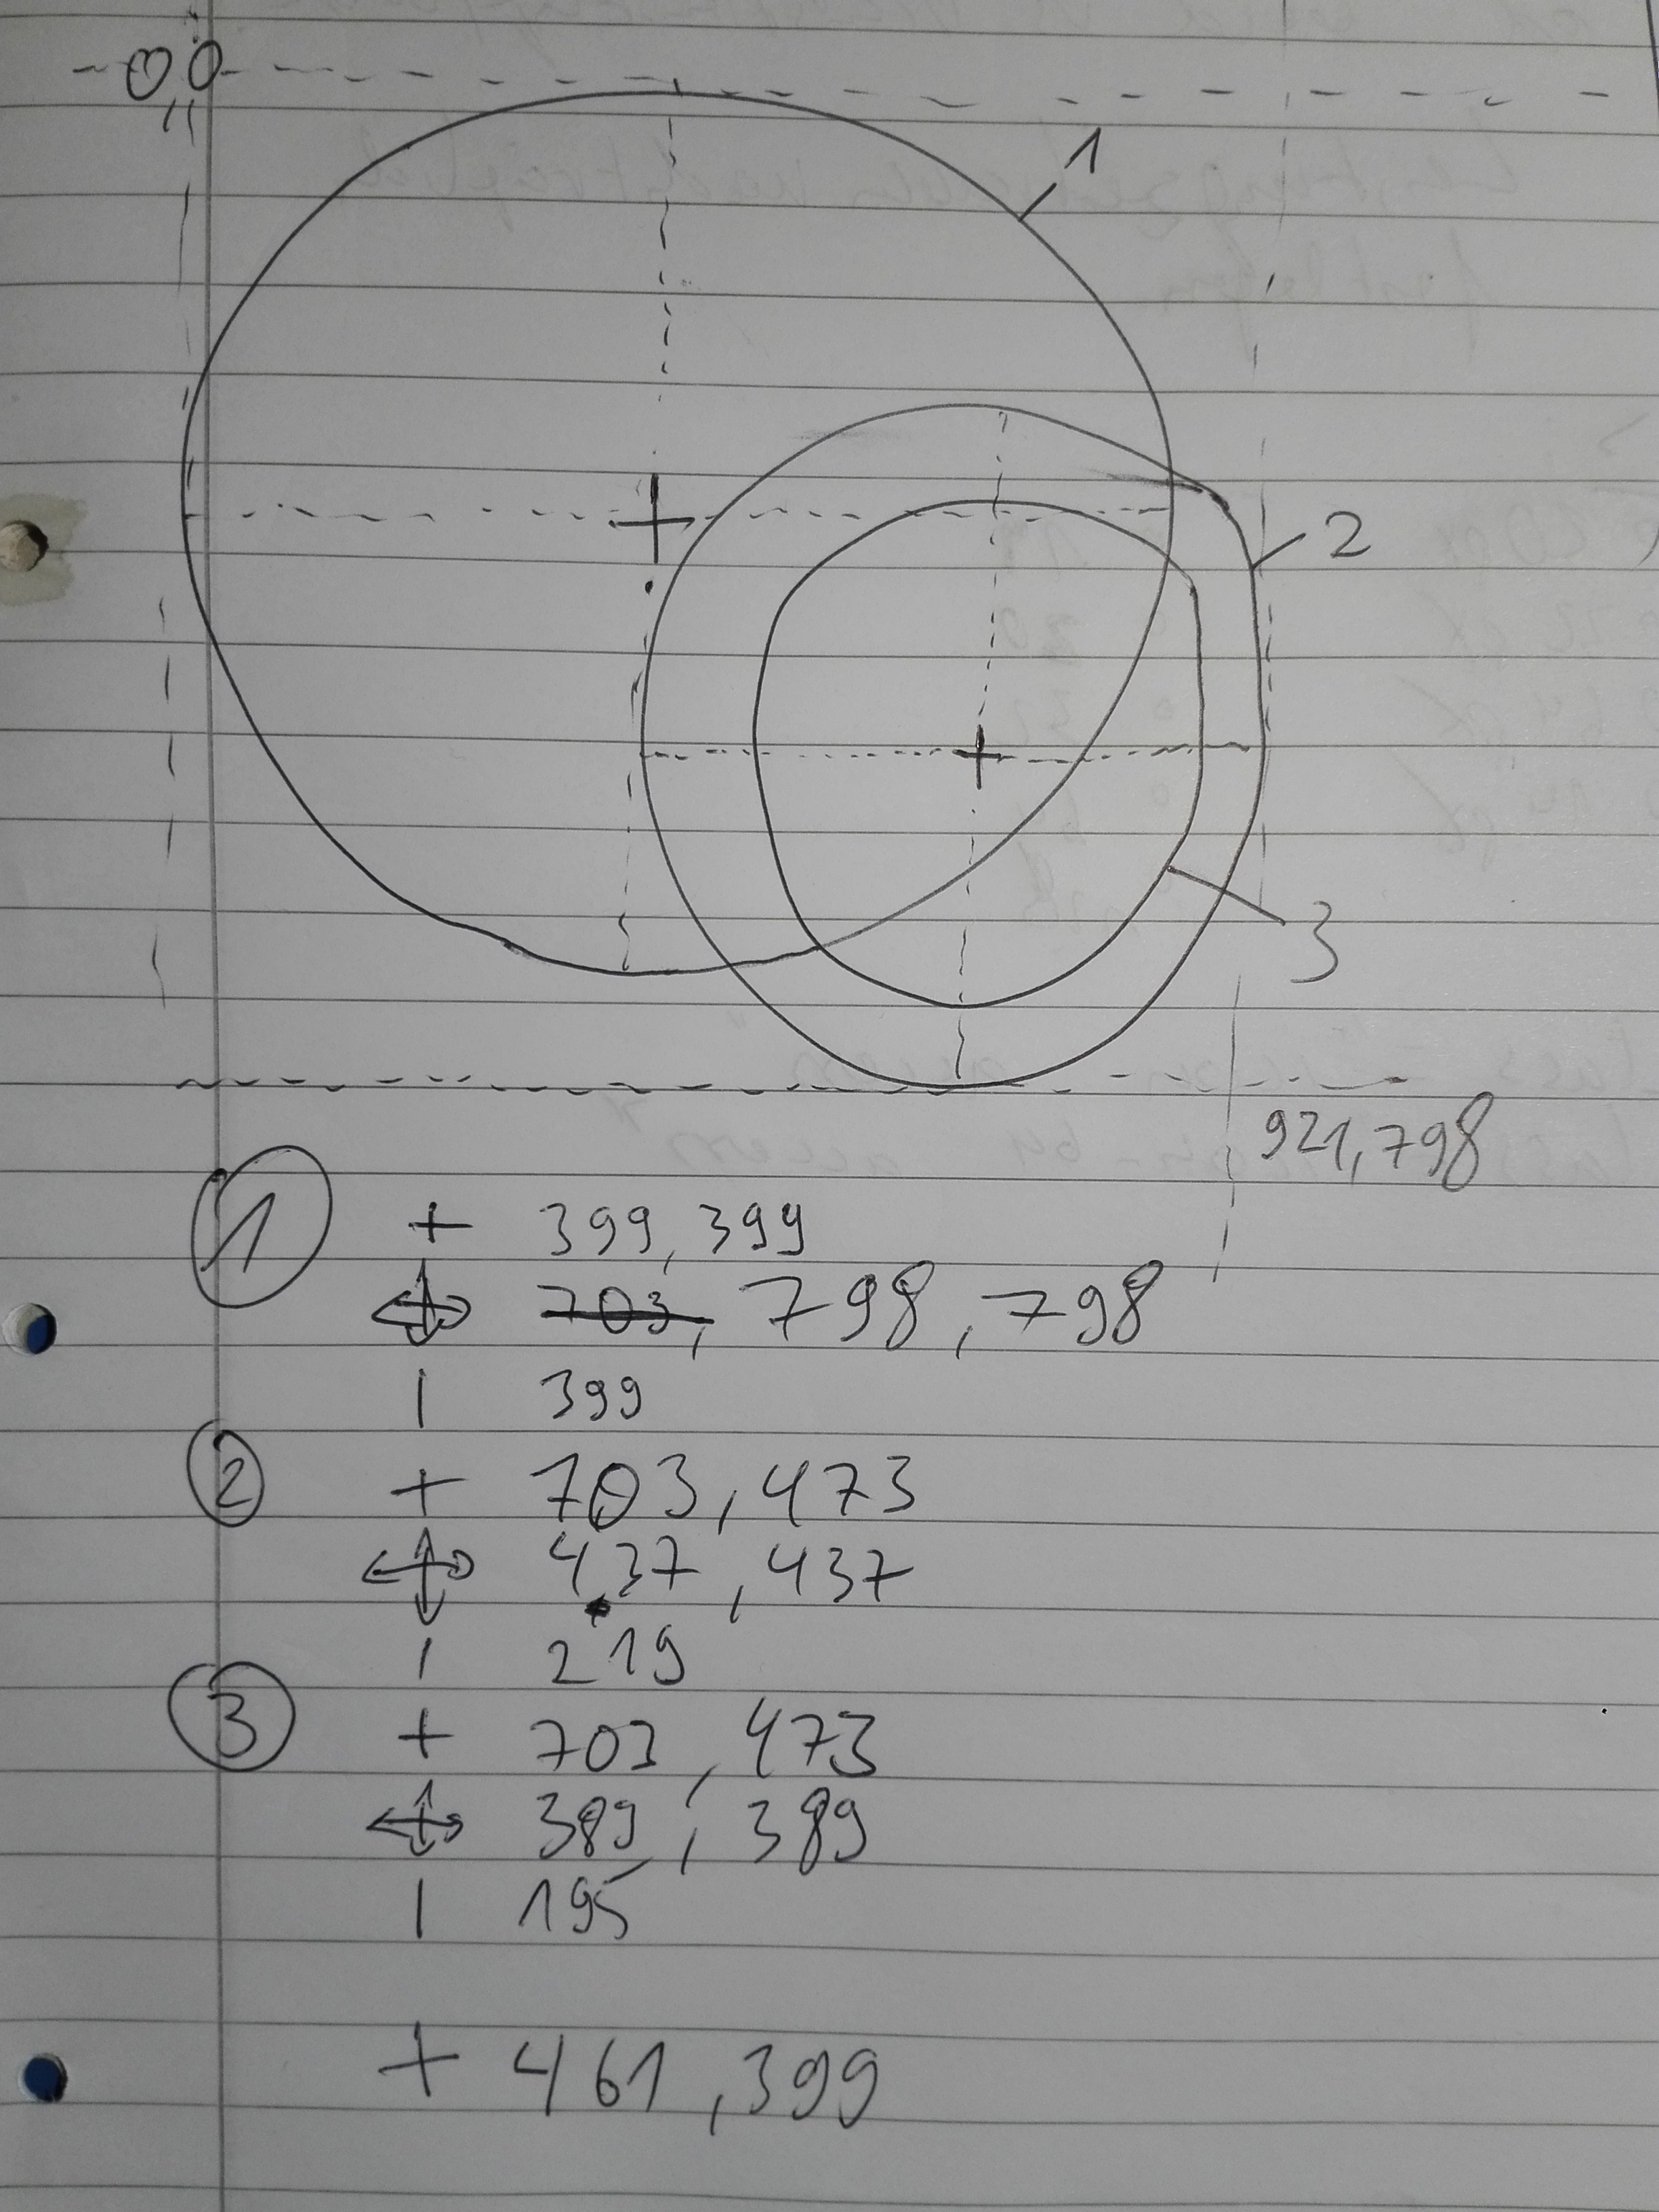 0,0
1
2
3
921,798
1 + 399, 399
703, 798, 798
| 399
2 + 703, 473
437, 437
| 219
3 + 703, 473
389, 389
| 195
+ 461, 399